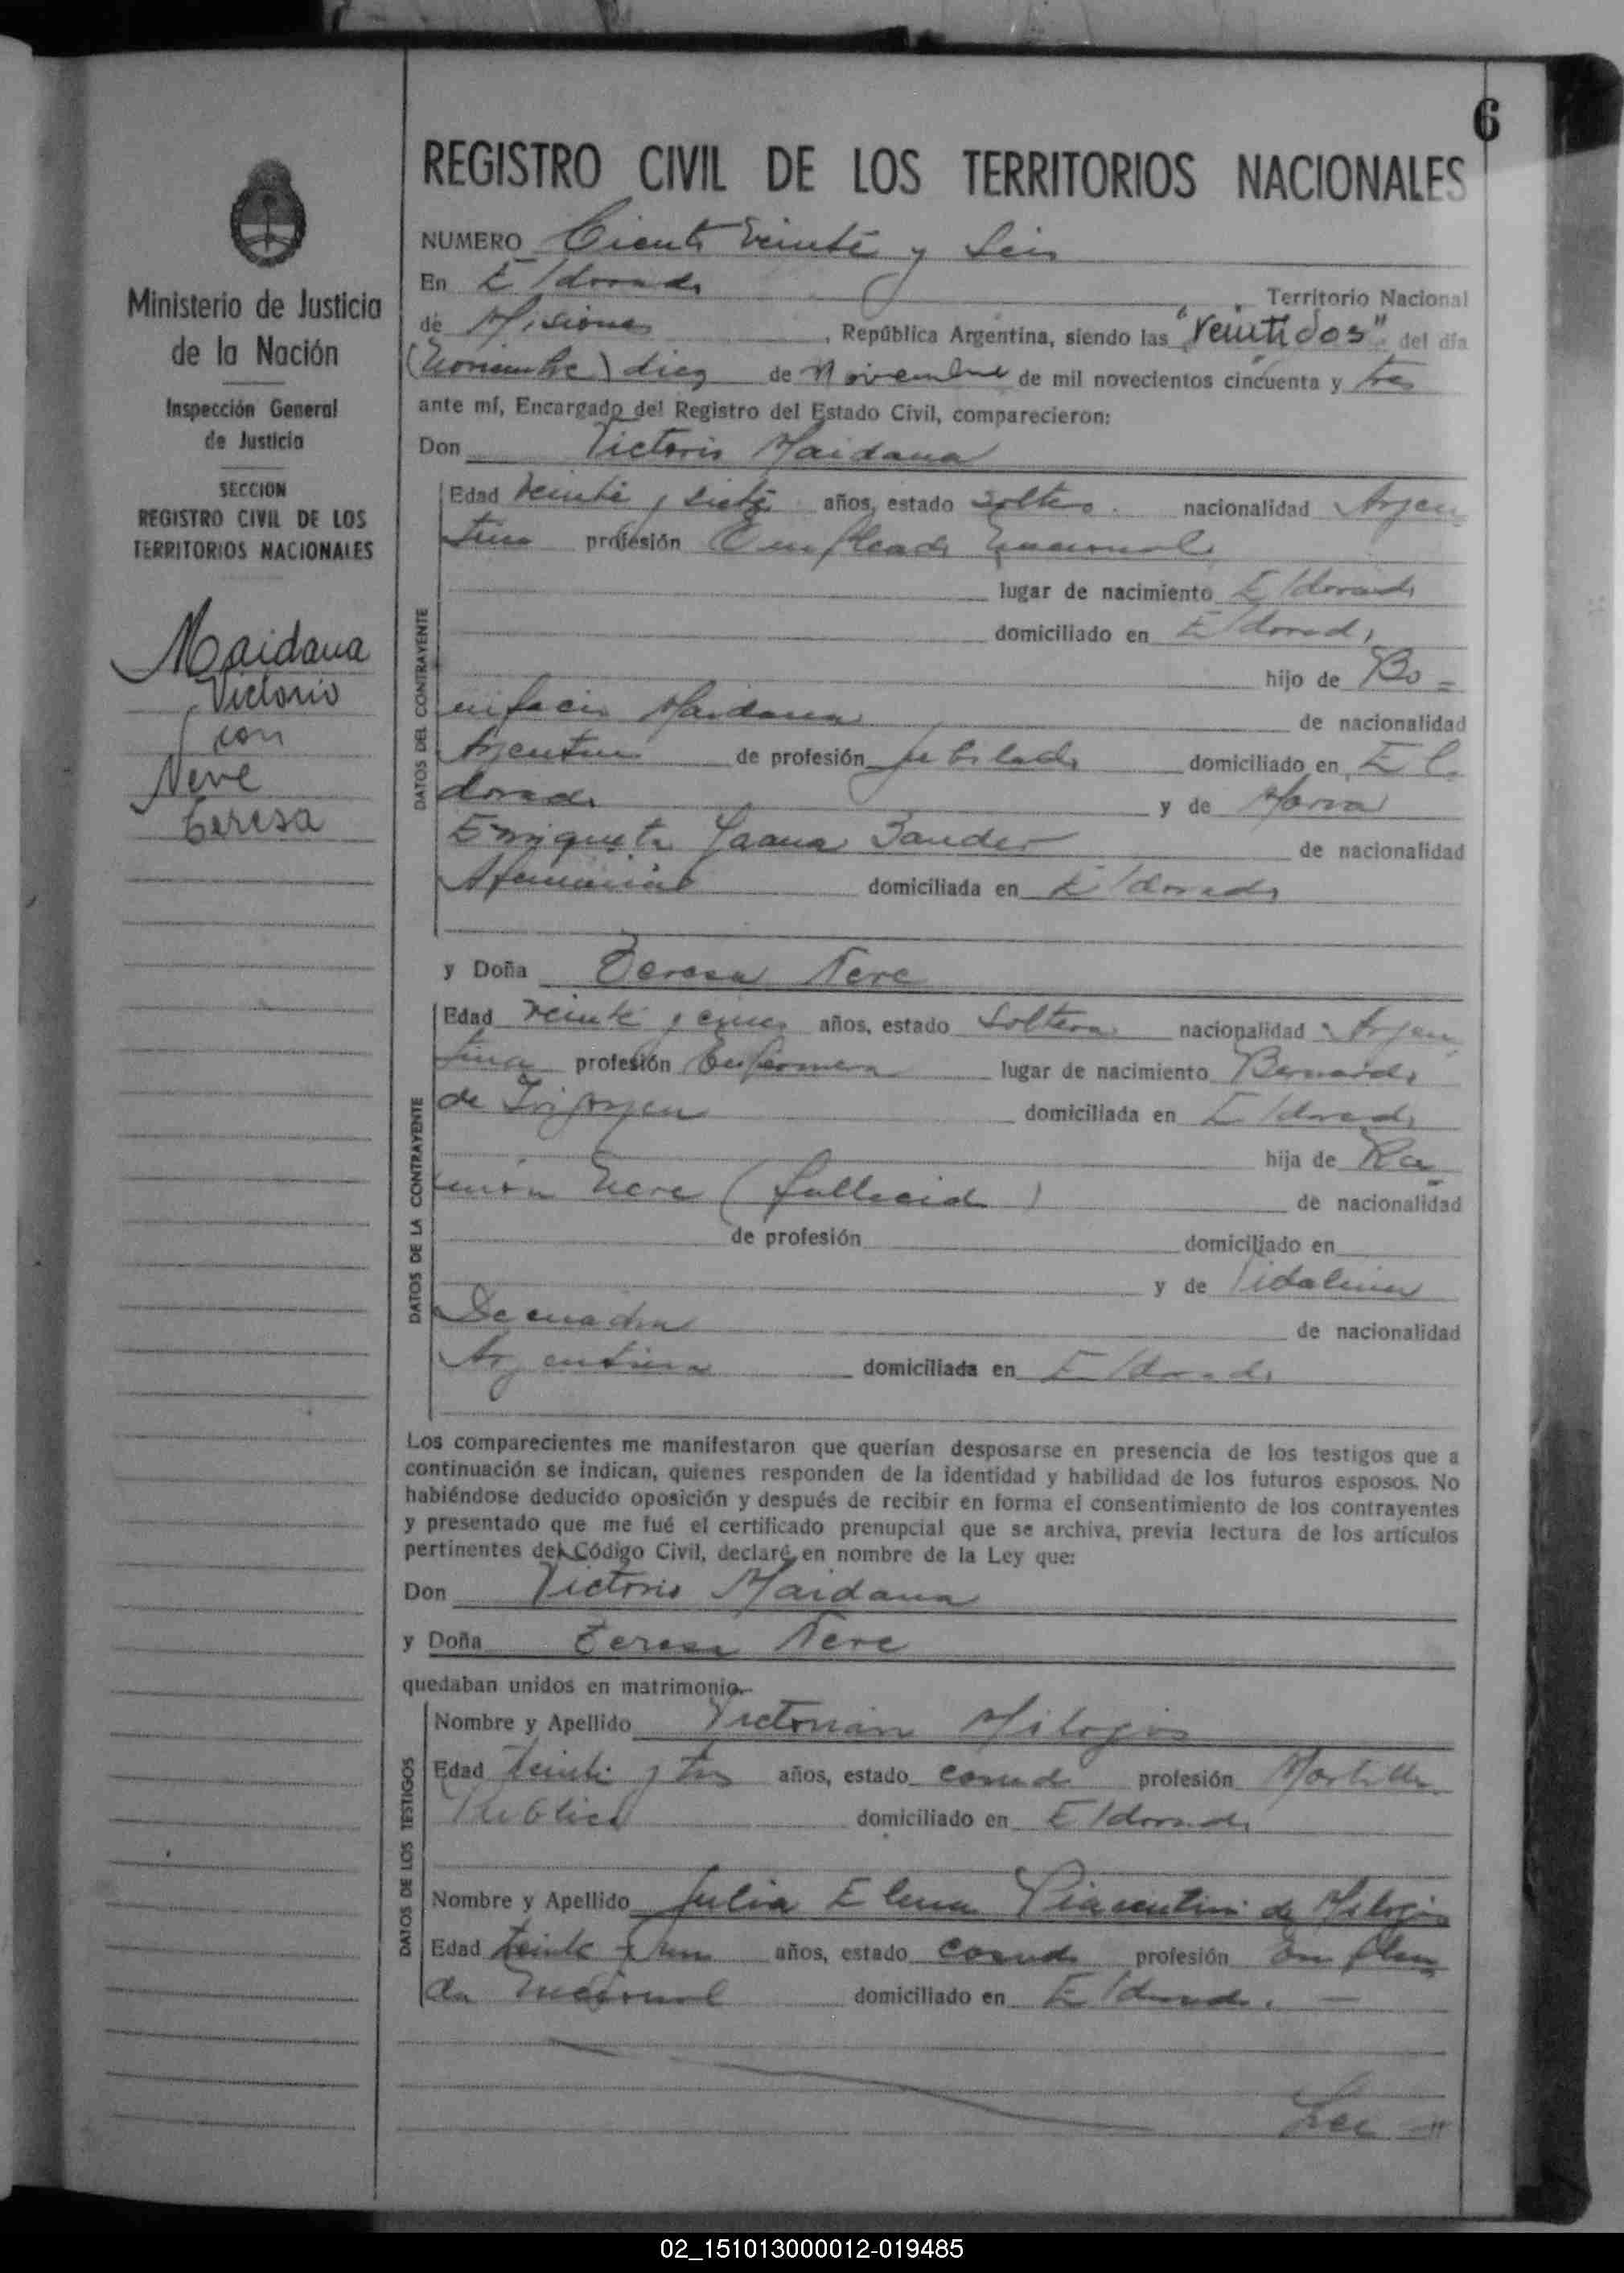 6
REGISTRO CIVIL DE LOS TERRITORIOS NACIONALES
Ministerio de Justicia
de la Nación
Inspección General
de Justicia
SECCION
REGISTRO CIVIL DE LOS
TERRITORIOS NACIONALES
Maidana
Victorio
con
Neve
Teresa
NUMERO Ciento veinte y Seis
En Eldorado Territorio Nacional
de Misiones, República Argentina, siendo las "veintidos" del día
(Noviembre) diez de Noviembre de mil novecientos cincuenta y tres
ante mí, Encargado del Registro del Estado Civil, comparecieron:
Don Victorio Maidana
DATOS DEL CONTRAYENTE
Edad veinte y siete años, estado soltero nacionalidad Argen
tino profesión Empleado Nacional
lugar de nacimiento Eldorado
domiciliado en Eldorado
hijo de Bo=
nifacio Maidana de nacionalidad
Argentino de profesión jubilado domiciliado en El
dorado y de Maria
Enriqueta Sander de nacionalidad
domiciliada en Eldorado
y Doña Teresa Neve
DATOS DE LA CONTRAYENTE
Edad veinte y cinco años, estado soltera nacionalidad Argen
tina profesión Enfermera lugar de nacimiento Bernardo
de Irigoyen domiciliada en Eldorado
hija de Ra
món Neve (fallecido) de nacionalidad
de profesión domiciliado en
y de Vidalina
de nacionalidad
Argentina domiciliada en Eldorado
Los comparecientes me manifestaron que querían desposarse en presencia de los testigos que a
continuación se indican, quienes responden de la identidad y habilidad de los futuros esposos. No
habiéndose deducido oposición y después de recibir en forma el consentimiento de los contrayentes
y presentado que me fué el certificado prenupcial que se archiva, previa lectura de los artículos
pertinentes del Código Civil, declaré en nombre de la Ley que:
Don Victorio Maidana
y Doña Teresa Neve
quedaban unidos en matrimonio.
DATOS DE LOS TESTIGOS
Nombre y Apellido Victorián
Edad veinte y tres años, estado casado profesión Martillero
Público domiciliado en Eldorado
Nombre y Apellido Julia Elena Piacentini de
Edad veinte y un años, estado casada profesión Emplea
da Nacional domiciliado en Eldorado. —
02_151013000012-019485